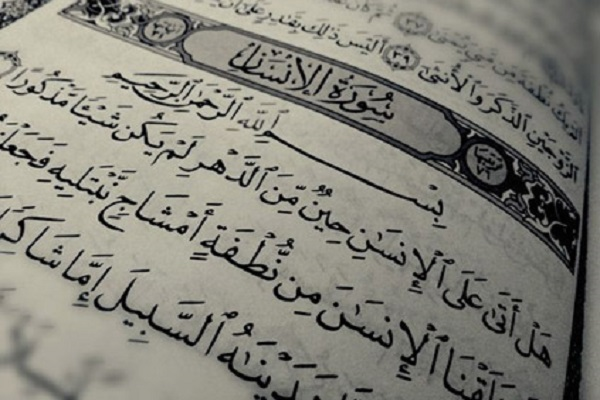 نُطْفَةً مِّن مَّنِىٍّ يُمْنَىٰ ٣٧ ثُمَّ كَانَ
ٱلزَّوْجَيْنِ ٱلذَّكَرَ وَٱلْأُنثَىٰٓ ٣٩ أَلَيْسَ ذَٰلِكَ بِقَٰدِرٍ عَلَىٰٓ أَن
سُورَةُ الإِنسَانِ
بِسْمِ ٱللَّهِ ٱلرَّحْمَٰنِ ٱلرَّحِيمِ
هَلْ أَتَىٰ عَلَى ٱلْإِنسَٰنِ حِينٌ مِّنَ ٱلدَّهْرِ لَمْ يَكُن شَيْـًٔا مَّذْكُورًا
خَلَقْنَا ٱلْإِنسَٰنَ مِن نُّطْفَةٍ أَمْشَاجٍ نَّبْتَلِيهِ
هَدَيْنَٰهُ ٱلسَّبِيلَ إِمَّا شَاكِرًا